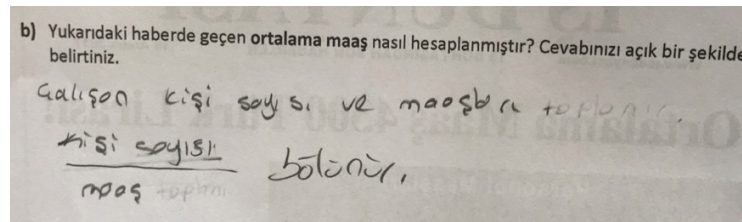 b) Yukarıdaki haberde geçen ortalama maaş nasıl hesaplanmıştır? Cevabınızı açık bir şekilde
belirtiniz.
Çalışan kişi sayısı ve maaşları toplanır.
kişi sayısı
maaş toplanı
bölünür.